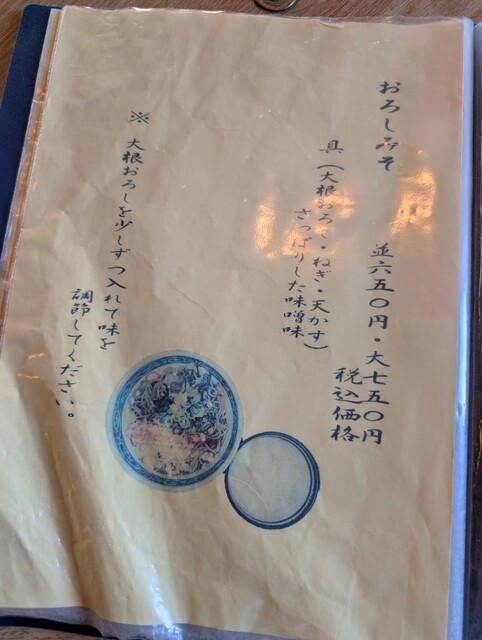 おろしみそ　並六五〇円・大七五〇円
税込価格
具（大根おろし・ねぎ・天かす）
さっぱりした味噌味
※　大根おろしを少しずつ入れて味を
調節してください。